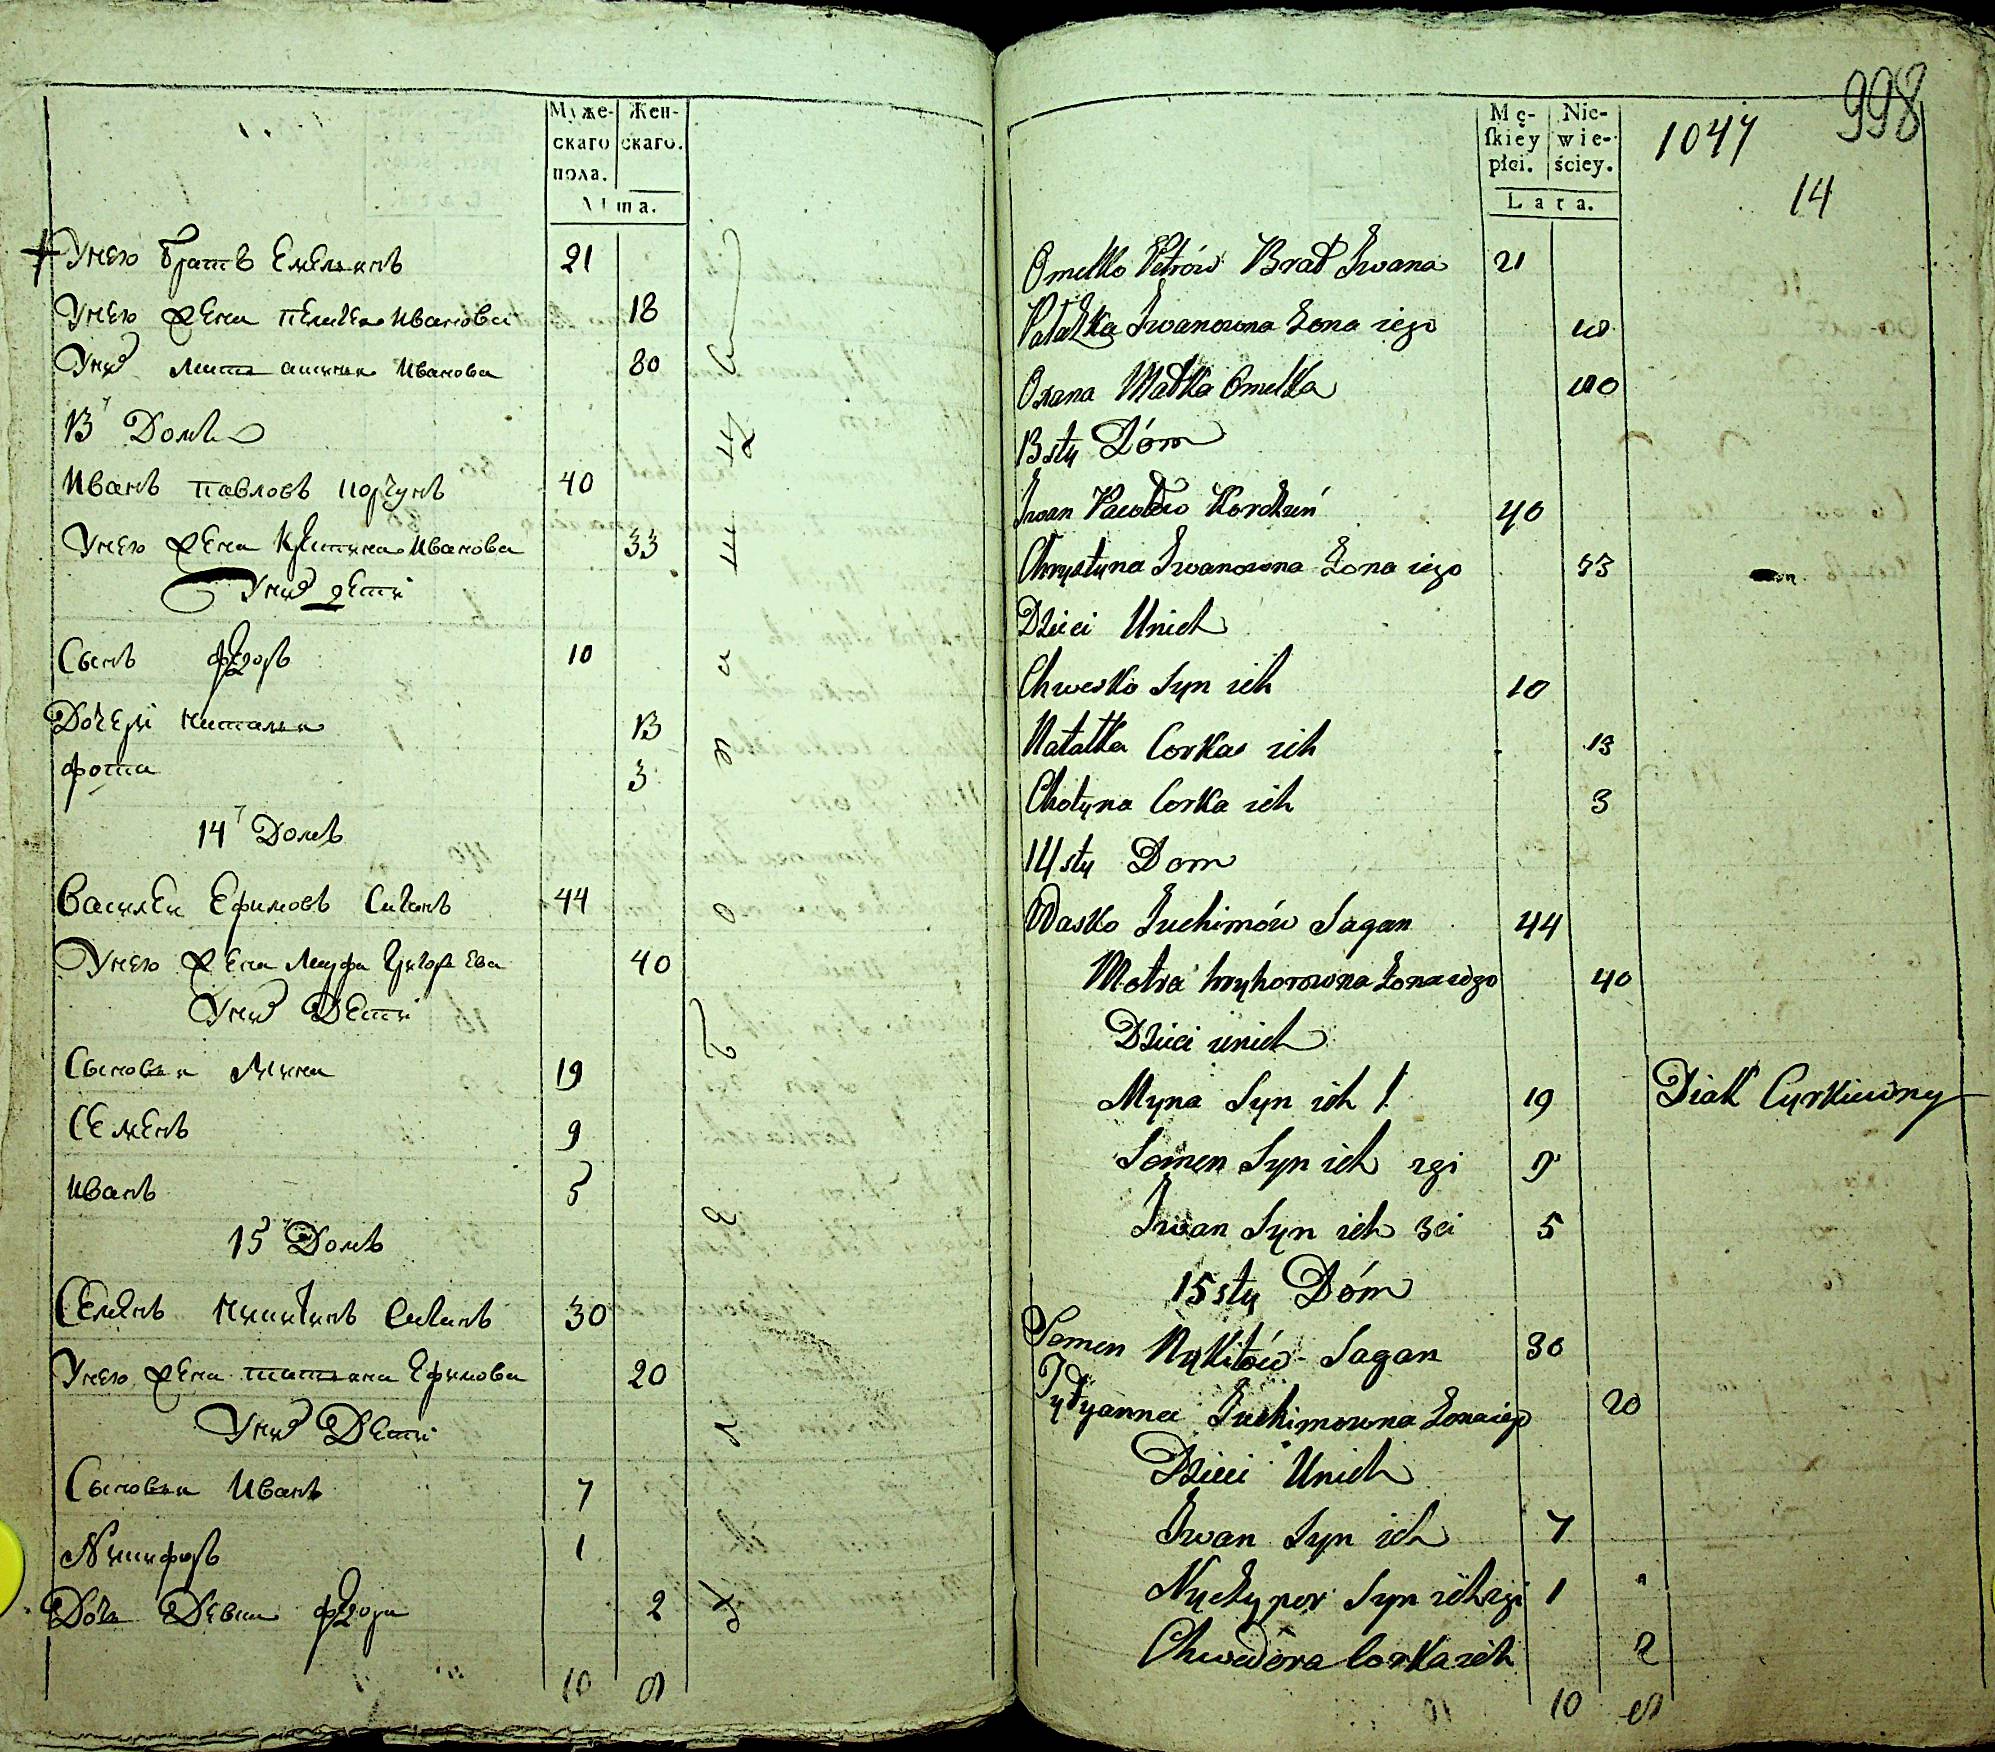 Муже-
скаго
пола.
Жен-
скаго.
Лѣта.
Унего братъ Емельянъ 21
Унего жена пелагея Иванова 18
Унихъ мать аксиня Иванова 80
13 Домъ
Иванъ павловъ 40
Унего жена Крестина Иванова 33
Унихъ дети
Сынъ федоръ 10
Дочери наталья 13
фотина 3
14 Домъ
Василеи Ефимовъ Саганъ 44
Унего жена Мотра Григорьева 40
Унихъ Дети
Сыновья Мина 19
Семенъ 9
Иванъ 5
15 Домъ
Семенъ Никитинъ Саганъ 30
Унего жена татьяна Ефимова 20
Унихъ Дети
Сыновья Иванъ 7
Никифоръ 1
Дочь Девка федора 2
10
Mę-
skiey
płci.
Nie-
wie-
ściey.
Lata.
1047
998
14
Omelko Petrów Brat Iwana 21
Pałażka Iwanowna Żona iego 18
Oxana Matka Omelka 80
13sty Dóm
Iwan 40
Chrystyna Iwanowna Żona iego 33
Dzieci Unich
Chwesko Syn ich 10
Natałka Corka ich 13
Chotyna Corka ich 3
14sty Dom
Wasko Juchimów Sagan 44
Motra hryhorowna Żona iego 40
Dzieci unich
Myna Syn ich 1 19 Diak Cyrkiewny
Semen Syn ich 2gi 9
Iwan Syn ich 3ci 5
15sty Dóm
Semen Nykitów Sagan 30
Tytyanna Juchimowna Żona iego 20
Dzieci Unich
Iwan Syn ich 7
Nyczypor Syn ich 2gi 1
Chwedora Corka ich 2
10